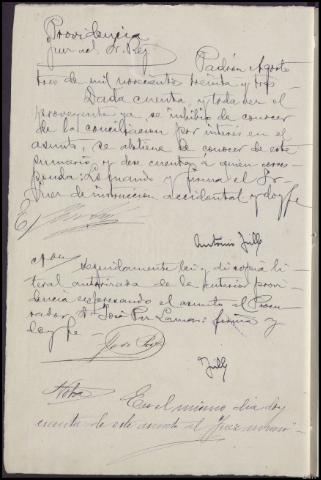 Providencia
Juez acl. Sr. Rey
Padrón Agosto
tres de mil novecientos treinta y tres.
Dada cuenta, y toda vez el
proveyente ya se inhibió de conocer
de la conciliación por interés en el
asunto, se abstiene de conocer de este
sumario, y dese cuenta a quien corres
ponda: Lo mandó y firma el Sr
Juez de instrucción accidental y doy fe
Antonio Jully
Seguidamente lei y di copia li
teral autorizada de la anterior provi
dencia expresando el asunto al Procu
rador D. José Rey Lamas: firma y
doy fe
José Rey
Jully
Nota
En el mismo dia doy
cuenta de este asunto al Juez